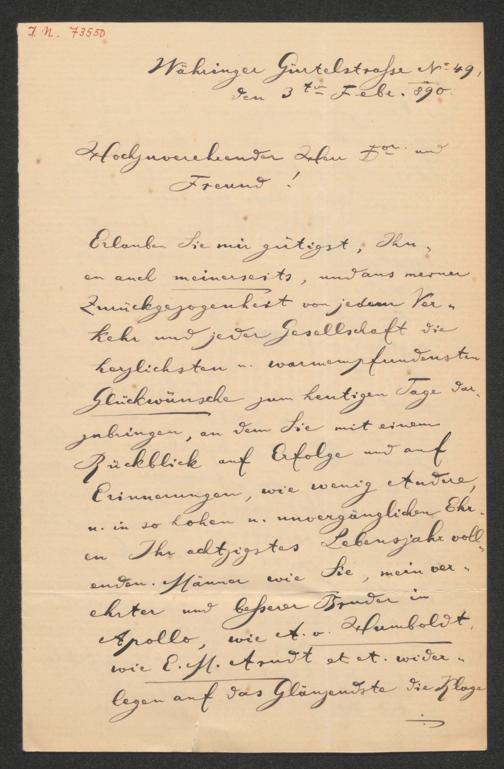 I. N. 73550
Währinger Gürtelstrasse No 49,
den 3ten Febr. 890.
Hochzuverehrender Herr Dor. und
Freund!
Erlauben Sie mir gütigst, Ihn-
en auch meinerseits, und aus meiner
Zurückgezogenheit von jedem Ver-
kehr und jeder Gesellschaft die
herzlichsten u. warmempfundensten
Glückwünsche zum heutigen Tage dar-
zubringen, an dem Sie mit einem
Rückblick auf Erfolge und auf
Erinnerungen, wie wenig Andere,
u. in so hohen u. unvergänglichen Ehr-
en Ihr achtzigstes Lebensjahr voll-
enden. Männer wie Sie, mein ver-
ehrter und besserer Bruder in
Apollo, wie A. v. Humboldt,
wie E. M. Arndt et ct. wider-
legen auf das Glänzendste die Klage